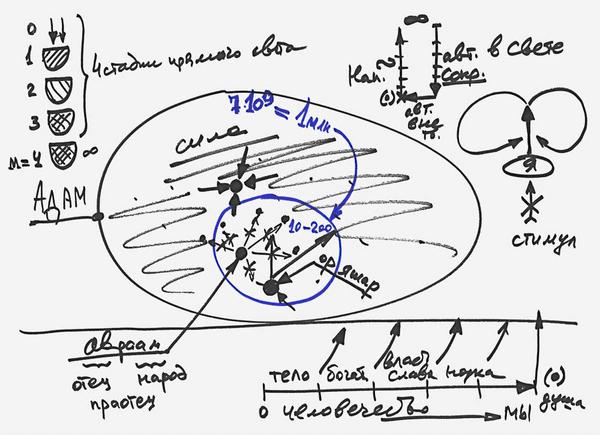 0
1
2
3
м=4 ∞
4 стадии прямого света
∞
авт. в свете
сокр.
Нап.
(0)
авт.
вне
7·10⁹ = 1 млн
сила
АДАМ
10-200
ор яшар
Я
стимул
авраам
отец народ
праотец
тело богат. власть слава наука
0 человечество мы
(0)
душа